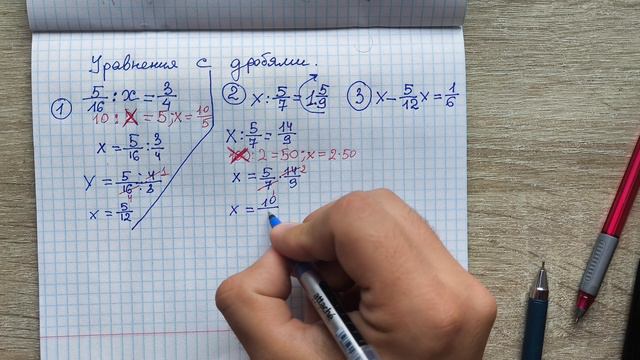 Уравнения с дробями.
1 5/16 : x = 3/4
10 : 2 = 5; x = 10/5
x = 5/16 : 3/4
x = 5 · 4 1 / 16 · 3 4
x = 5/12
2 x : 5/7 = 1 5/9
x : 5/7 = 14/9
100 : 2 = 50; x = 2 · 50
x = 5/7 1 · 14/9 2
x = 10
3 x - 5/12 x = 1/6
attaché